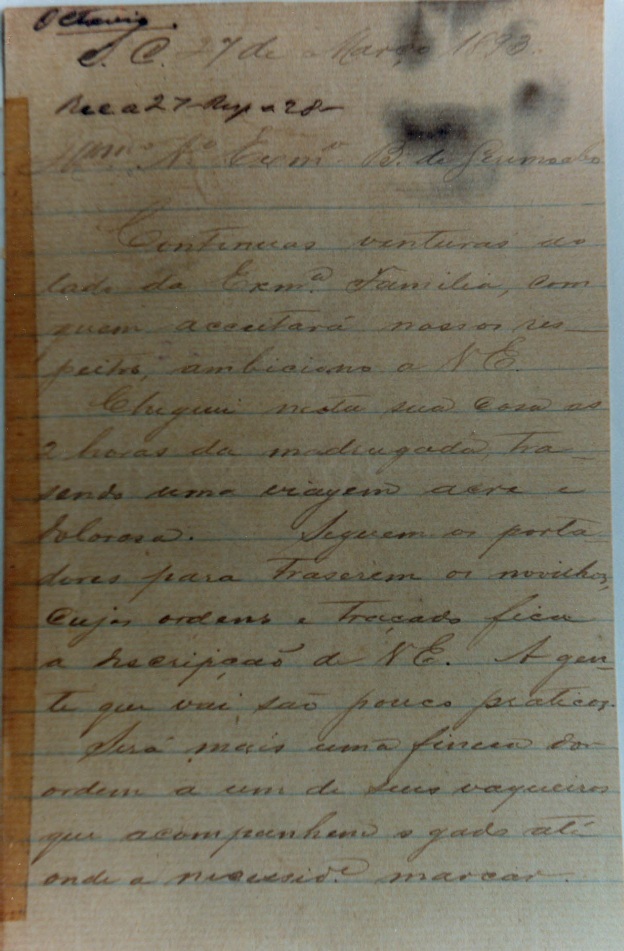 Octavio.
S. C. 27 de Março 1893.
Rec a 27 Resp a 28
Exmº. B. de Geremoabo
Continuas venturas ao
lado da Exmª. Familia, com
quem acceitará nossos res-
peitos, ambiciono a V E.
Cheguei nesta sua casa as
2 horas da madrugada, tra-
sendo uma viagem acre e
dolorosa. Seguem os porta-
dores para traserem os novilhos,
cujas ordens e traçado fica
a descripçaõ de V E. A gen-
te que vai, saõ pouco praticos.
Será mais uma finesa dar
ordem a um de seus vaqueiros
que acompanhem o gado até
onde a necessidᵉ. marcar.